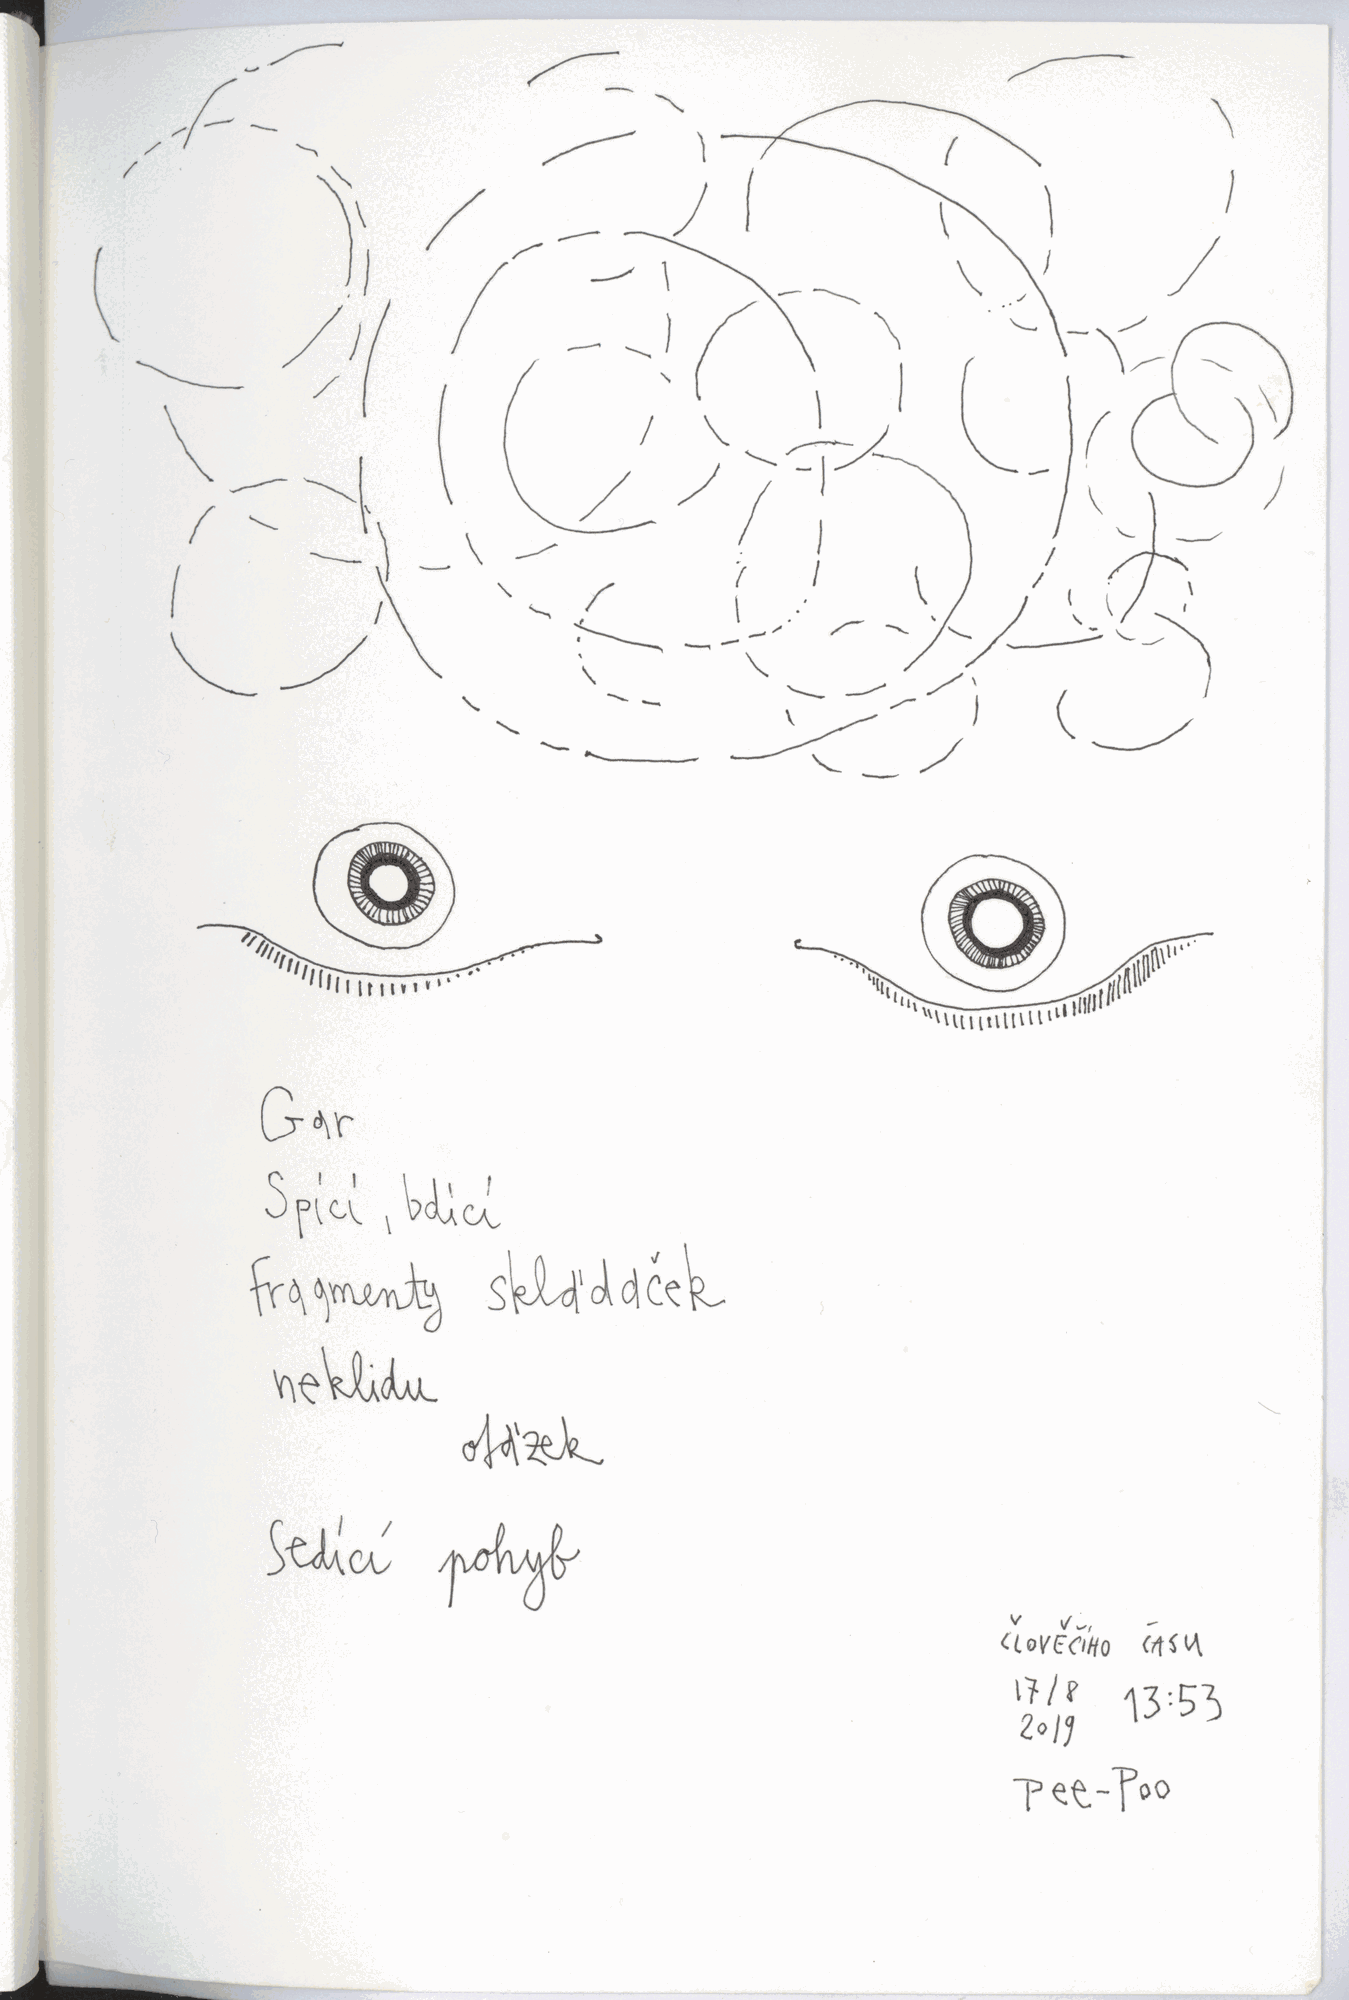 Gar
Spící, bdící
Fragmenty skládaček
neklidu
otázek
Sedící pohyb
ČLOVĚČÍHO ČASU
17/8 13:53
2019
Pee-Poo